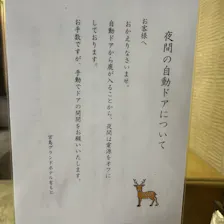 夜間の自動ドアについて
お客様へ
おかえりなさいませ。
自動ドアから鹿が入ることから、夜間は電源をオフに
しております。
お手数ですが、手動でドアの開閉をお願いいたします。